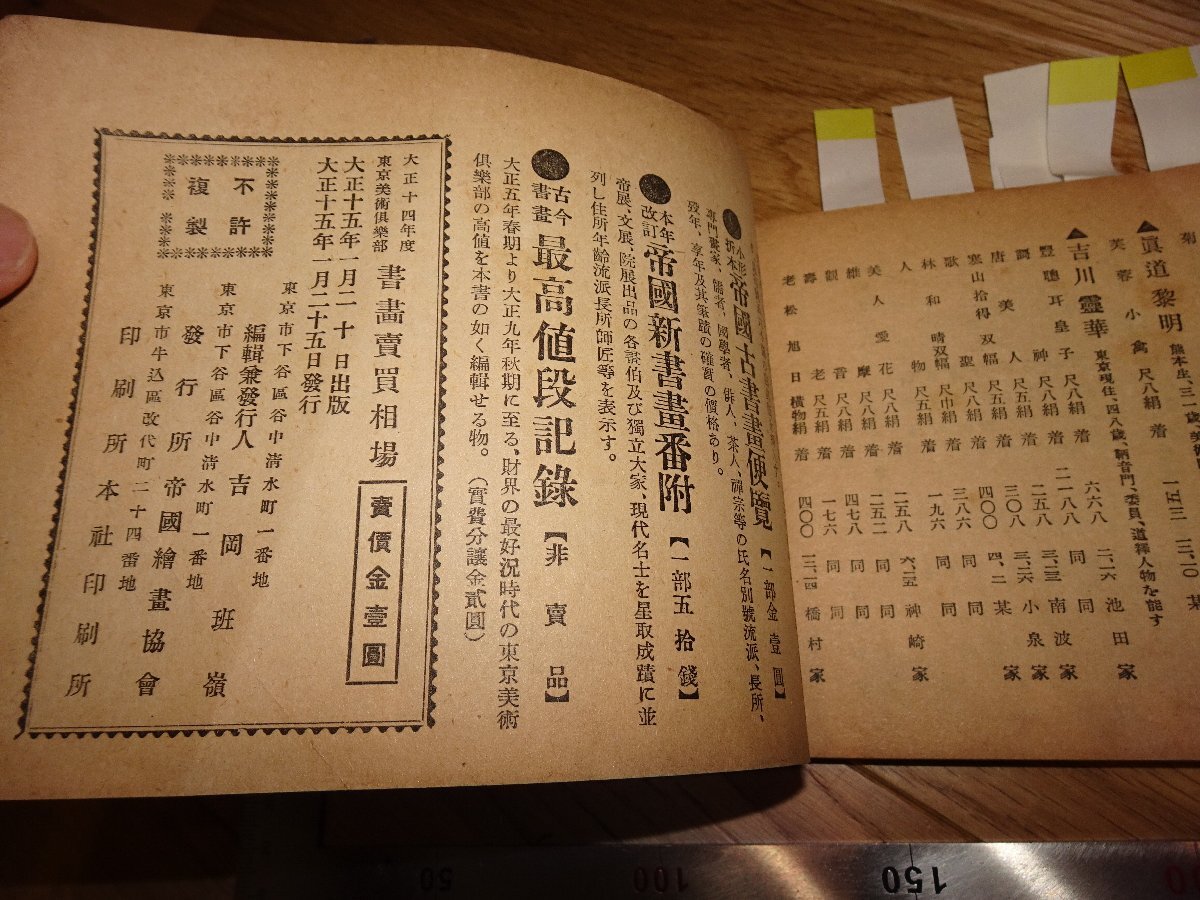 菊
芙蓉小禽 尺八絹 着 一五三 一三、一〇 某
▲眞道黎明
▲吉川靈華 東京現住、四八歲、鞆音門、委員、道釋人物を能す
豐聰耳皇子 尺八絹 着 二一八八 同 南波家
唐美人 尺五絹 着
寒山拾得双幅
歌聖 尺巾絹 着 三八六 同
林和靖双幅 尺五絹 着 一九六 同
人物
美人愛花 尺八絹 着 二五二 同
維摩 尺八絹 着 四七八 同
觀音 尺八絹 着 一七六 同
壽老 尺五絹
老松旭日 横物絹 着
小形折本 帝國古書畫便覽 【一部金壹圓】
專門畫家、儒者、國學者、俳人、茶人、禪宗等の氏名別號流派、長所、
歿年、享年及其筆蹟の確實の價格あり。
本年改訂 帝國新書畫番附 【一部五拾錢】
帝展、文展、院展出品の各畫伯及び獨立大家、現代名士を星取成蹟に並
列し住所年齡流派長所師匠等を表示す。
古今書畫 最高値段記錄 【非賣品】
大正五年春期より大正九年秋期に至る、財界の最好況時代の東京美術
俱樂部の高値を本書の如く編輯せる物。 (實費分讓金貳圓)
大正十四年度
東京美術俱樂部 書畫賣買相場
賣價金壹圓
大正十五年一月二十日出版
大正十五年一月二十五日發行
不許複製
東京市下谷區谷中清水町一番地
編輯兼發行人 吉岡班嶺
東京市下谷區谷中清水町一番地
發行所 帝國繪畫協會
東京市牛込區改代町二十四番地
印刷所 本社印刷所
50
100
150